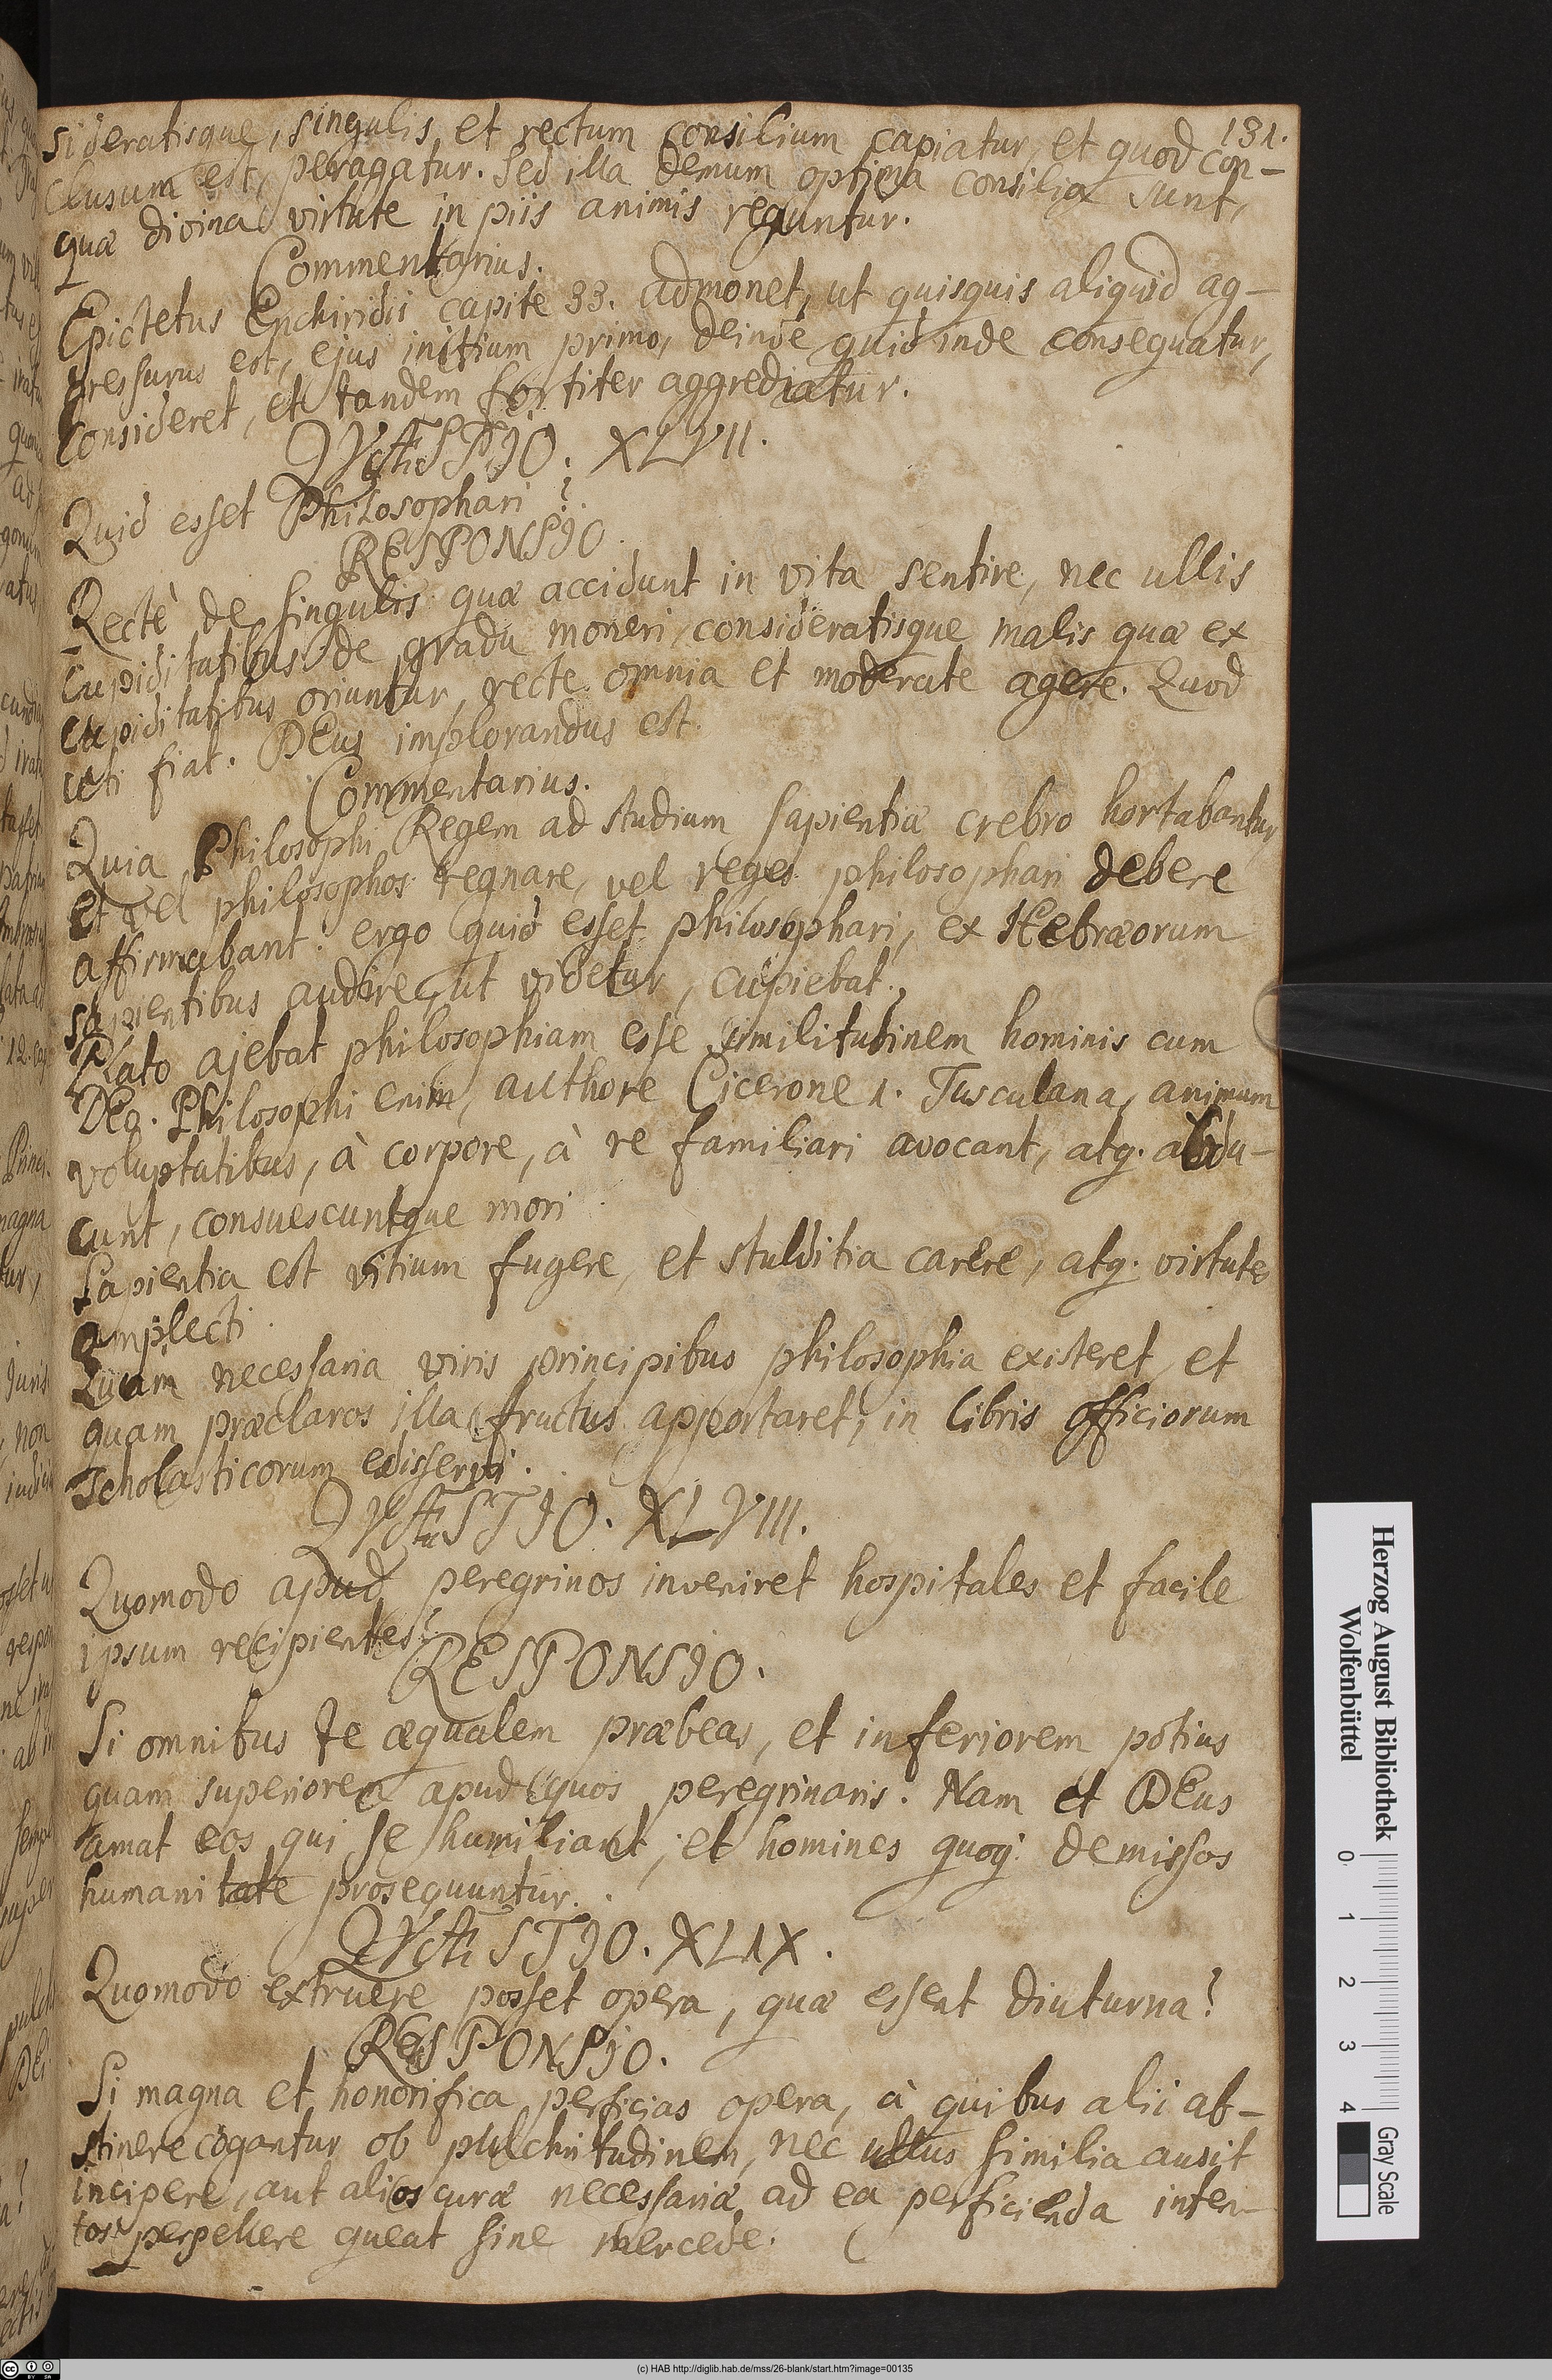 131.
sideratisque, singulis, et rectum consilium capiatur, et quod con-
clusum est, peragatur. Sed illa demum optima consilia sunt,
quæ divina virtute in piis animis reguntur.
Commentarius.
Epictetus Enchiridii capite 33. admonet, ut quisquis aliquid ag-
gressurus est, ejus initium primo, deinde quid inde consequatur,
consideret, et tandem fortiter aggrediatur.
QVÆSTIO. XLVII.
Quid esset Philosophari?
RESPONSIO.
Rectè de singulis quæ accidunt in vita sentire, nec ullis
cupiditatibus de gradu moneri, consideratisque malis quæ ex
cupiditatibus oriuntur, recte omnia et moderate agere. Quod
uti fiat. DEus implorandus est.
Commentarius.
Quia Philosophi Regem ad studium sapientiæ crebro hortabantur,
et vel philosophos regnare, vel reges philosophari debere
affirmabant: ergo quid esset philosophari, ex Hebræorum
sapientibus audire, ut videtur, cupiebat.
Plato ajebat philosophiam esse similitudinem hominis cum
DEo. Philosophi enim, authore Cicerone 1. Tusculana, animum
voluptatibus, à corpore, à re familiari avocant, atq. abdu-
cunt, consuescuntque mori.
Sapientia est vitium fugere, et stultitia carere, atq. virtutes
amplecti.
Quàm necessaria viris principibus philosophia existeret, et
quam præclaros illa fructus apportaret, in libris officiorum
Scholasticorum edisserui.
QVÆSTIO. XLVIII.
Quomodo apud peregrinos inveniret hospitales et facile
ipsum recipientes?
RESPONSIO.
Si omnibus te æqualem præbeas, et inferiorem potius
quam superiorem apud quos peregrinaris. Nam et DEus
amat eos qui se humiliant, et homines quoq. demissos
humanitate prosequuntur.
QVÆSTIO. XLIX.
Quomodo extruere posset opera, quæ essent diuturna?
RESPONSIO.
Si magna et honorifica perficias opera, à quibus alii ab-
stinere cogantur ob pulchritudinem, nec ullus similia ausit
incipere, aut alios curæ necessariæ ad ea perficienda inten-
tos perpellere queat sine mercede.
Herzog August Bibliothek
Wolfenbüttel
0 1 2 3 4
Gray Scale
(c) HAB http://diglib.hab.de/mss/26-blank/start.htm?image=00135